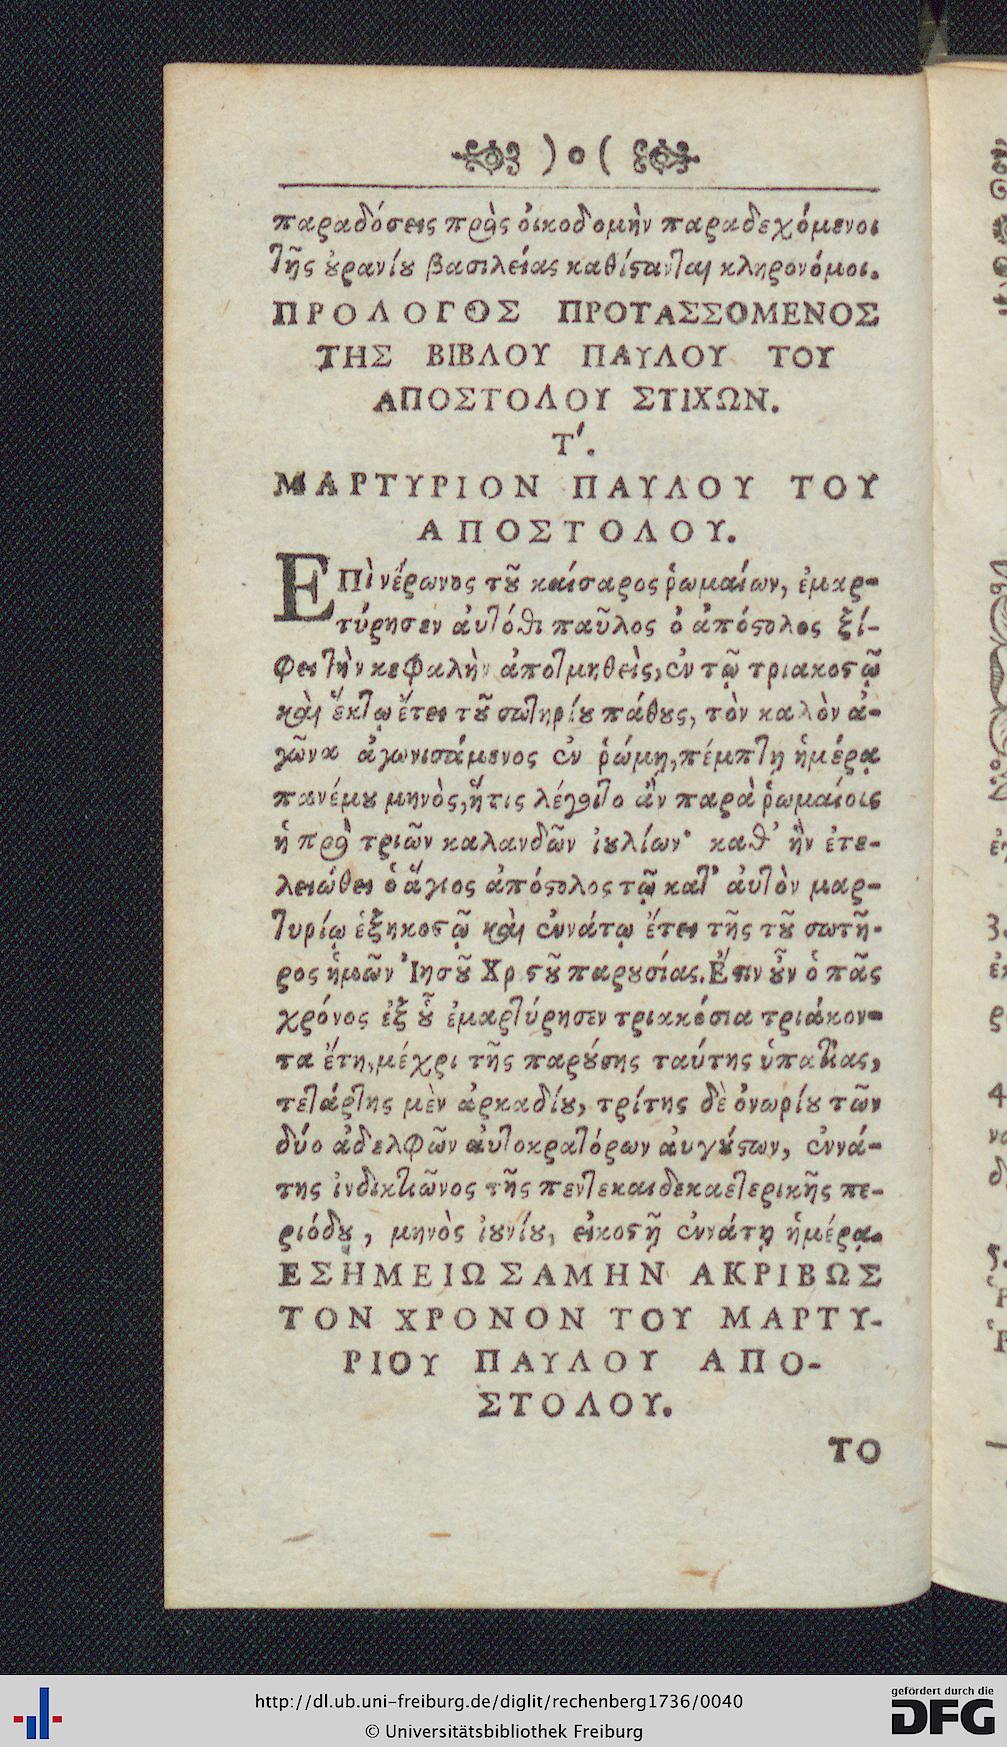 ) o (
παραδόσεις πρὸς ὀικοδομὴν παραδεχόμενοι
τῆς ὐρανίυ βασιλείας καθίστανται κληρονόμοι.
ΠΡΟΛΟΓΟΣ ΠΡΟΤΑΣΣΟΜΕΝΟΣ
ΤΗΣ ΒΙΒΛΟΥ ΠΑΥΛΟΥ ΤΟΥ
ΑΠΟΣΤΟΛΟΥ ΣΤΙΧΩΝ.
Τʹ.
ΜΑΡΤΥΡΙΟΝ ΠΑΥΛΟΥ ΤΟΥ
ΑΠΟΣΤΟΛΟΥ.
ΕΠὶ νέρωνος τȣ͂ καίσαρος ῥωμαίων, ἐμαρ-
τύρησεν ἀυτόθι παῦλος ὁ ἀπόστολος ξί-
φει τὴν κεφαλὴν ἀποτμηθεὶς, ἐν τῷ τριακοστῷ
καὶ ἕκτῳ ἔτει τȣ͂ σωτηρίȣ πάθȣς, τὸν καλὸν ἀ-
γῶνα ἀγωνισάμενος ἐν ῥώμῃ, πέμπτῃ ἡμέρᾳ
πανέμȣ μηνὸς, ἥτις λέγοιτο ἂν παρὰ ῥωμαίοις
ἡ πρὸ τριῶν καλανδῶν ἰȣλίων· καθ᾽ ἣν ἐτε-
λειώθει ὁ ἅγιος ἀπόστολος τῷ κατ᾽ ἀυτὸν μαρ-
τυρίῳ ἑξηκοστῷ καὶ ἐννάτῳ ἔτει τῆς τȣ͂ σωτῆ-
ρος ἡμῶν Ἰησȣ͂ Χρ στȣ͂ παρȣσίας. Ἔστιν ȣ̓͂ν ὁ πᾶς
χρόνος ἐξ ȣ̔͂ ἐμαρτύρησεν τριακόσια τριάκον-
τα ἔτη, μέχρι τῆς παρȣ́σης ταύτης ὑπατίας,
τετάρτης μὲν ἀρκαδίȣ, τρίτης δὲ ὀνωρίȣ τῶν
δύο ἀδελφῶν ἀυτοκρατόρων ἀυγȣ́στων, ἐννά-
της ἰνδικτιῶνος τῆς πεντεκαιδεκαετερικῆς πε-
ριόδȣ, μηνὸς ἰȣνίȣ, εἰκοστῇ ἐννάτῃ ἡμέρᾳ.
ΕΣΗΜΕΙΩΣΑΜΗΝ ΑΚΡΙΒΩΣ
ΤΟΝ ΧΡΟΝΟΝ ΤΟΥ ΜΑΡΤΥ-
ΡΙΟΥ ΠΑΥΛΟΥ ΑΠΟ-
ΣΤΟΛΟΥ.
ΤΟ
3.
4
5.
http://dl.ub.uni-freiburg.de/diglit/rechenberg1736/0040
© Universitätsbibliothek Freiburg
gefördert durch die
DFG